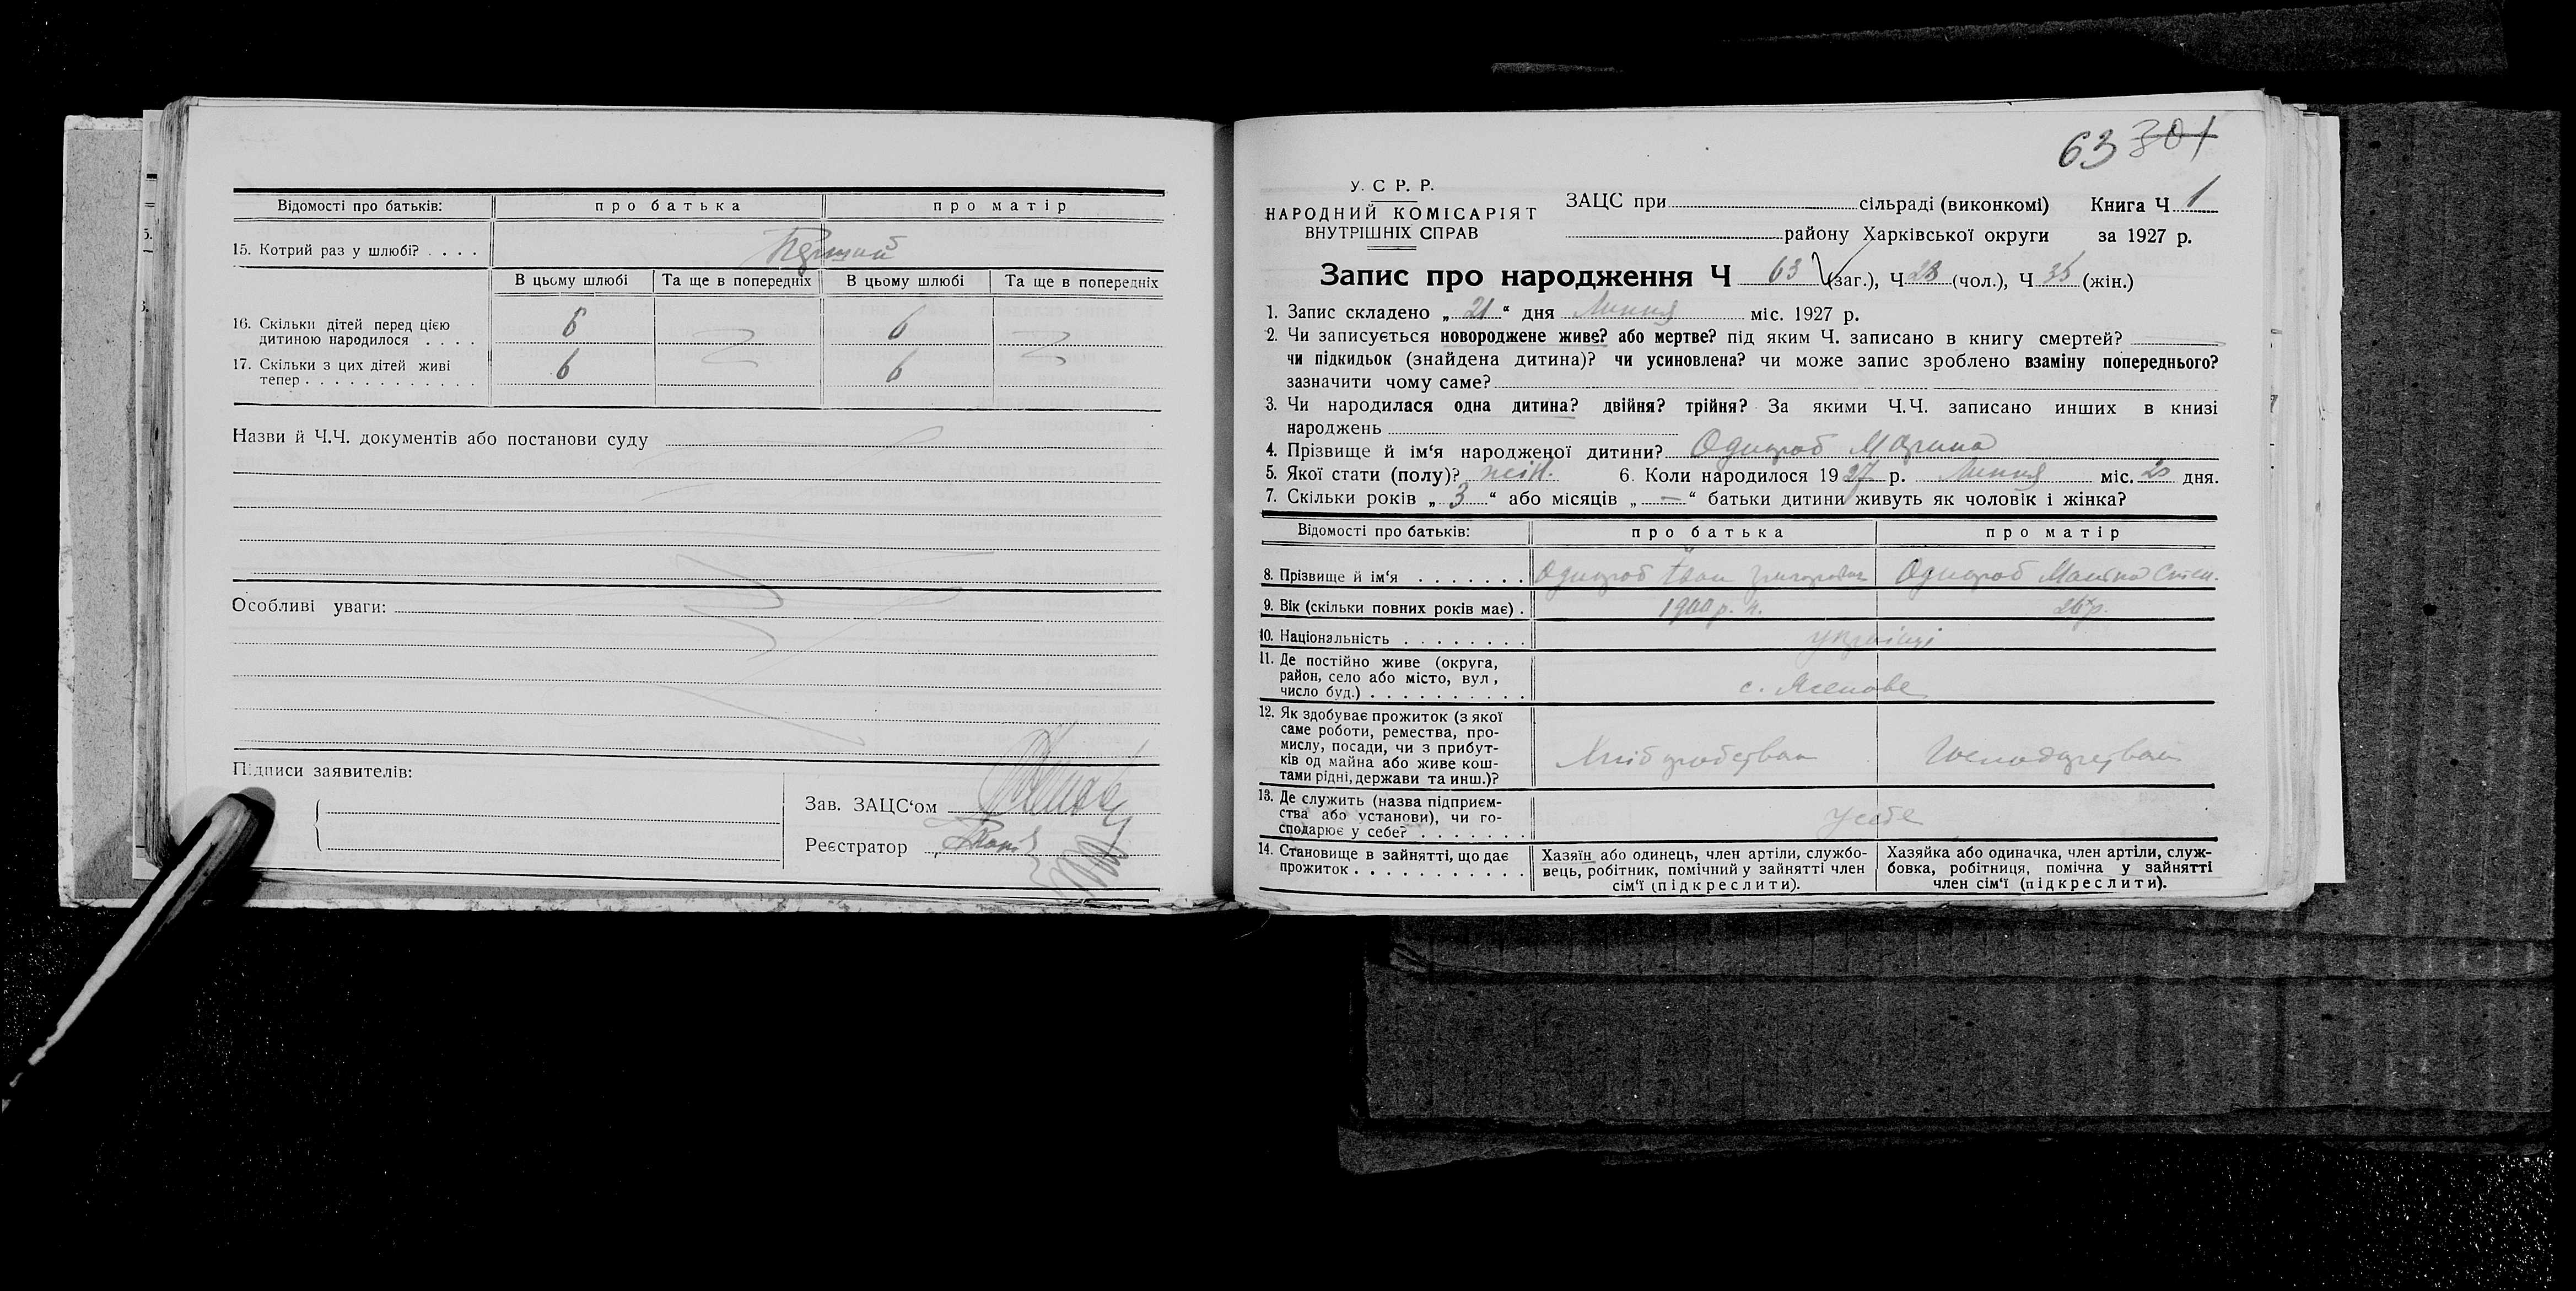 Відомості про батьків: про батька про матір
15. Котрий раз у шлюбі? . . . . Перший
В цьому шлюбі Та ще в попередніх В цьому шлюбі Та ще в попередніх
16. Скільки дітей перед цією
дитиною народилося . . . . 6 6
17. Скільки з цих дітей живі
тепер . . . . . . . . . . . . . 6 6
Назви й Ч.Ч. документів або постанови суду
Особливі уваги:
Підписи заявителів:
Зав. ЗАЦС‘ом
Реєстратор
63 301
У. С Р. Р.
НАРОДНИЙ КОМІСАРІЯТ
ВНУТРІШНІХ СПРАВ
ЗАЦС при сільраді (виконкомі) Книга Ч 1
району Харківської округи за 1927 р.
Запис про народження Ч 63 (заг.), Ч 28 (чол.), Ч 35 (жін.)
1. Запис складено „ 21 “ дня Липня міс. 1927 р.
2. Чи записується новороджене живе? або мертве? під яким Ч. записано в книгу смертей?
чи підкидьок (знайдена дитина)? чи усиновлена? чи може запис зроблено взаміну попереднього?
зазначити чому саме?
3. Чи народилася одна дитина? двійня? трійня? За якими Ч.Ч. записано инших в книзі
народжень
4. Прізвище й ім‘я народженої дитини? Однороб Марина
5. Якої стати (полу)? жін. 6. Коли народилося 1927 р. Липня міс. 20 дня.
7. Скільки років „ 3 “ або місяців „ — “ батьки дитини живуть як чоловік і жінка?
Відомості про батьків: про батька про матір
8. Прізвище й ім‘я . . . . . . . Однороб Іван Григорович Однороб Степ.
9. Вік (скільки повних років має) . 1900 р. н. 26 р.
10. Національність . . . . . . . . українці
11. Де постійно живе (округа,
район, село або місто, вул,
число буд.) . . . . . . . . . . с. Ясенове
12. Як здобуває прожиток (з якої
саме роботи, ремества, про-
мислу, посади, чи з прибут-
ків од майна або живе кош-
тами рідні, держави та инш.)? Хліборобством Господарством
13. Де служить (назва підприєм-
ства або установи), чи го-
сподарює у себе? . . . . . . . у себе
14. Становище в зайнятті, що дає
прожиток . . . . . . . . . . .
Хазяїн або одинець, член артіли, службо-
вець, робітник, помічний у зайнятті член
сім‘ї (підкреслити).
Хазяйка або одиначка, член артіли, служ-
бовка, робітниця, помічна у зайнятті
член сім‘ї (підкреслити).